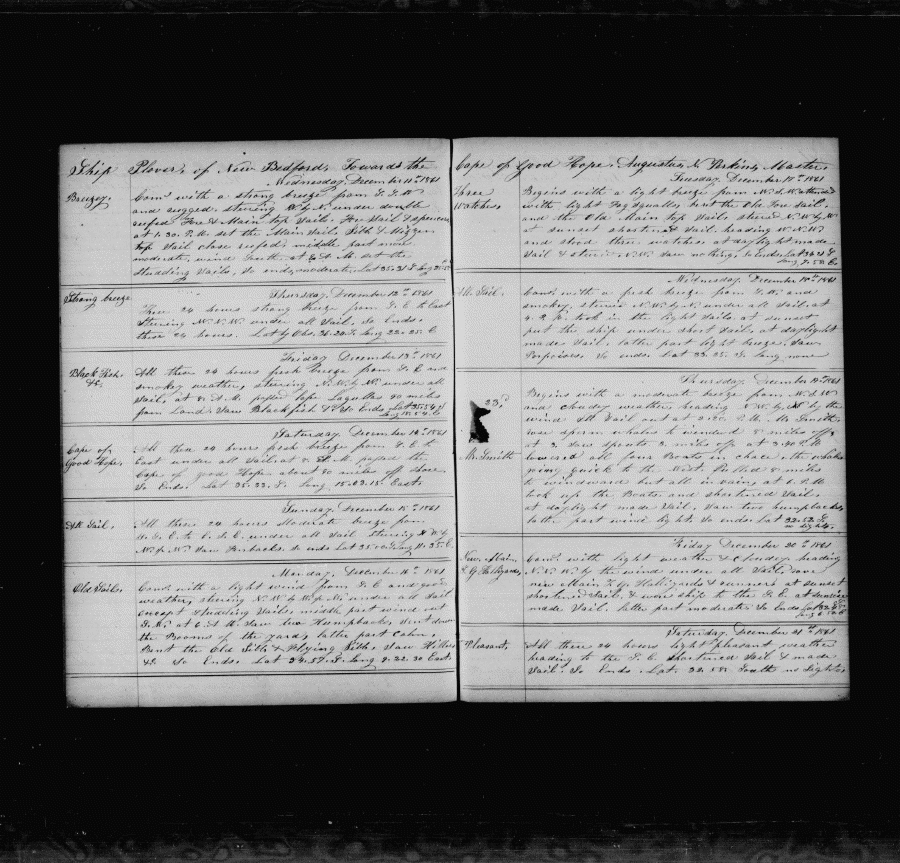 Ship Plover, of New Bedford, Towards the
Wednesday, December 11th 1861
Breezey. Com. with a strong breeze from S.S.W
and rugged. steering W by N. under double
reefed Fore & Main top Sails. Fore Sail & spencer
at 1.30. P.M. set the Main Sail. Jibb & Mizzen
top Sail close reefed, middle part more
moderate, wind South. at 8 A.M. set the
Studding Sails, So ends, moderate, Lat 35.31 S. Long
Strong breeze Thursday, December 12th 1861
These 24 hours strong breeze from S.E to East
Steering N.N.W. under all Sail, So Ends
these 24 hours. Lat by Obs. 36.20 S. Long 22.25. E
Friday December 13th 1861
Black Fish. All these 24 hours fresh breeze from S.E and
&c. smokey weather, steering N.W. by N. under all
Sail, at 8 A.M. passed Cape Lagullas 40 miles
from Land. Saw Blackfish So Ends Lat 35.54 S
Long 18.54. E
Saturday. December 14th 1861
Cape of All these 24 hours fresh breeze from S.E to
Good Hope. East under all Sail at 8 A.M. passed the
Cape of good Hope about 80 miles off shore
So Ends. Lat 35.23. S Long 15.03.15. East.
Sunday. December 15th 1861
All Sail. All these 24 hours Moderate breeze from
S.E to E.S.E. under all Sail Steering
N. by W. Saw Finbacks. So ends Lat 35.00 S Long 11.35. E.
Monday, December 16th 1861
Old Sails. Com. with a light wind from S.E and good
weather, steering N.W. by W. under all Sail
except Studding Sails, middle part wind
S.W. at 6 A.M. Saw two Humpback, Sent down
the Booms of the yard, latter part Calm,
Bent the Old Jibb & Flying Jibb. Saw Killers
&c So Ends. Lat 34.57. S. Long 9.22.30 East.
Cape of Good Hope. Augustus N. Perkins, Master.
Tuesday, December 17th 1861
Three Begins with a light breeze from W.S.W attended
Watches. with light Fog Squalls, bent the Old Fore Sail,
and the Old Main top Sails, steered N.W. by W
at sunset shortened Sail heading W.N.W.
and stood three watches, at daylight made
Sail & steered N.W. Saw nothing, So ends Lat 34.21 S
Long 7.58. E.
Wednesday. December 18th 1861
All Sail. Com. with a fresh breeze from S.W. and
smokey, steered N.W. by N. under all Sail, at
4. P.M. took in the light Sails, at sunset
put the ship under short Sail, at daylight
made Sail, latter part light breeze. Saw
Porpoises. So ends. Lat 33.25. S. Long none
Thursday. December 19th 1861
Begins with a moderate breeze from W.S.W
23d and cloudy weather, heading N.W. by the
wind All Sail out at 2.30. P.M. Mr. Smith
saw sperm whales to windward 8 miles off
at 3 saw spouts 3 miles off, at 3.40 P.M
Mr. Smith lowered all four Boats in chace, the whales
going quick to the West. Pulled 8 miles
to windward but all in vain, at 6 P.M
took up the Boats and shortened Sail,
at daylight made Sail. Saw two humpbacks
latter part wind light. So ends. Lat 32.52 S.
Friday December 20th 1861
New Main Com. with light weather & cloudy heading
T.G. Halliyards N.N.W. by the wind under all Sail, rove
new Main T.G. Halliyards & runners at sunset
shortened Sail, & wore ship to the S.E. at sunrise
made Sail, latter part moderate So Ends Lat 32
Saturday. December 21st 1861
Pleasant. All these 24 hours light pleasant weather
heading to the S.E. shortened Sail & made
Sail. So Ends. Lat. 32.58 South no sights